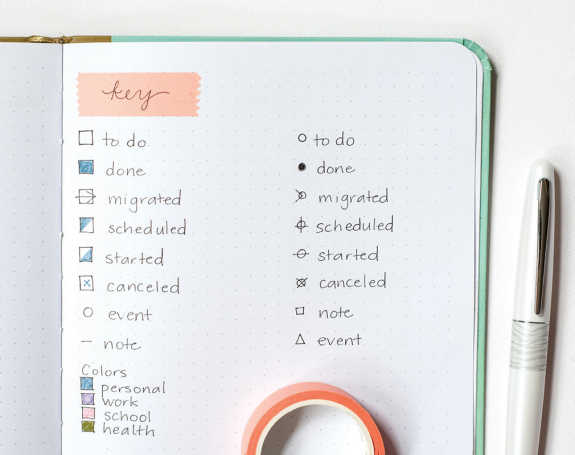 key
to do
done
migrated
scheduled
started
canceled
event
note
Colors
personal
work
school
health
to do
done
migrated
scheduled
started
canceled
note
event